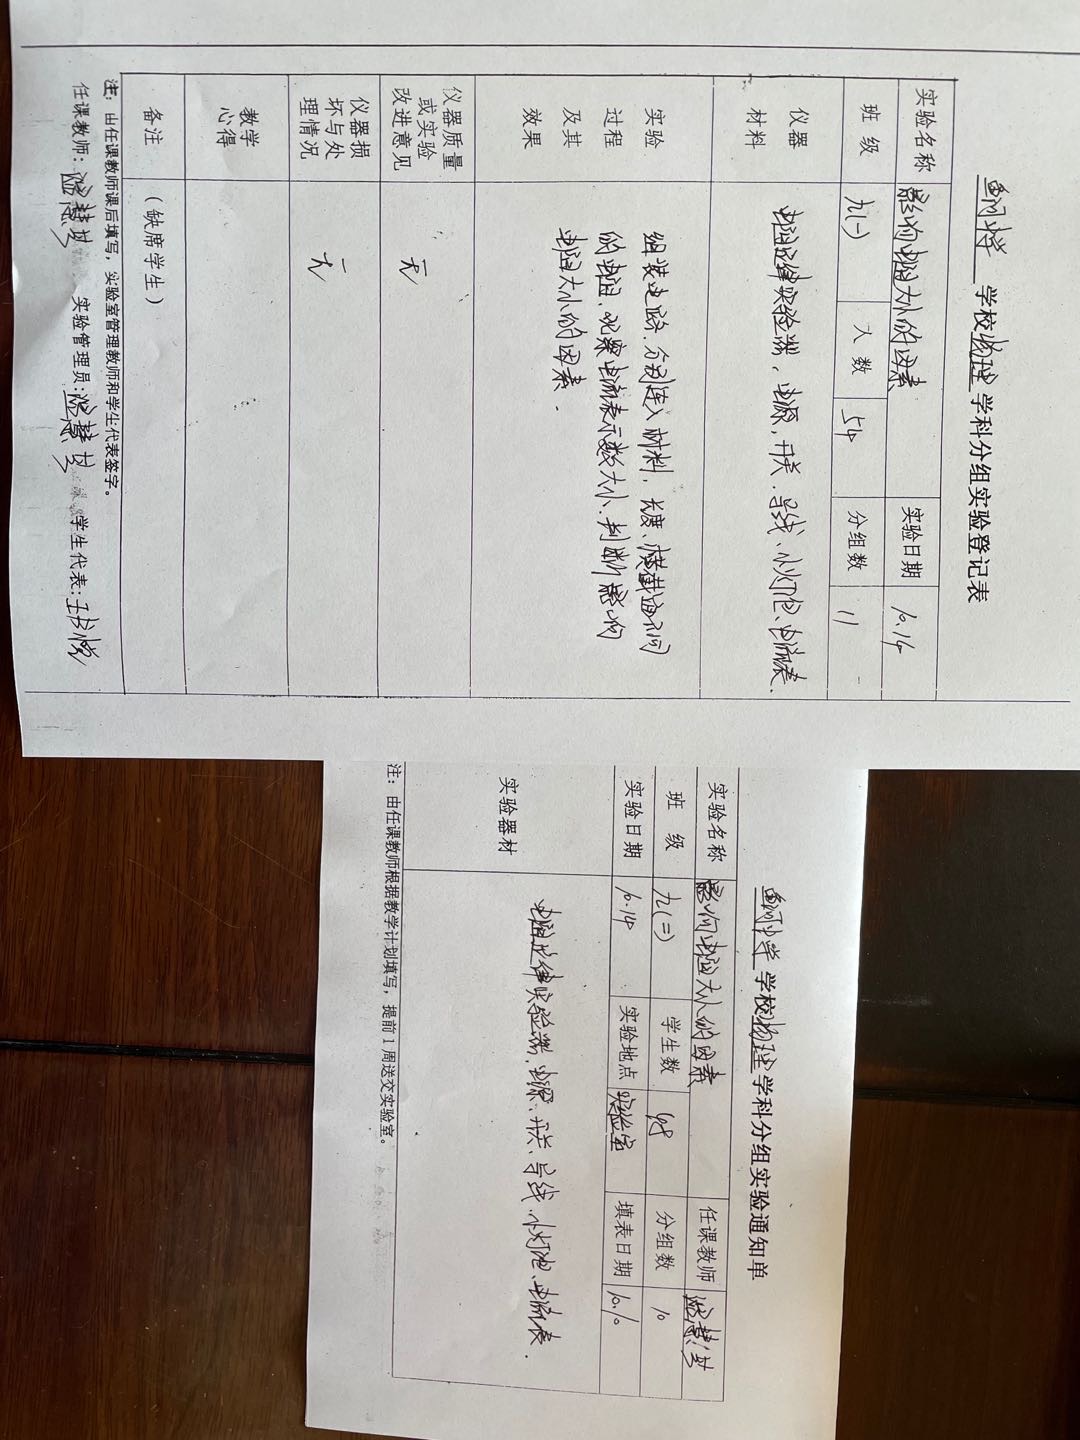 学校物理学科分组实验登记表
实验名称 影响电阻大小的因素 实验日期 10.14
班 级 九(一) 人 数 54 分组数 11
仪器
材料
电阻定律实验器、电源、开关、导线、小灯泡、电流表.
实验
过程
及其
效果
组装电路.分别连入材料、长度、横截面不同
的电阻.观察电流表示数大小.判断影响
电阻大小的因素.
仪器质量
或实验
改进意见
无
仪器损
坏与处
理情况
无
教学
心得
备注 (缺席学生)
注: 由任课教师课后填写, 实验室管理教师和学生代表签字。
任课教师: 实验管理员: 学生代表:
中学 学校物理学科分组实验通知单
实验名称 影响电阻大小的因素 任课教师
班 级 九(二) 学生数 48 分组数 10
实验日期 10.14 实验地点 实验室 填表日期 10.10
实验器材 电阻定律实验器、电源、开关、导线、小灯泡、电流表.
注: 由任课教师根据教学计划填写, 提前1周送交实验室。